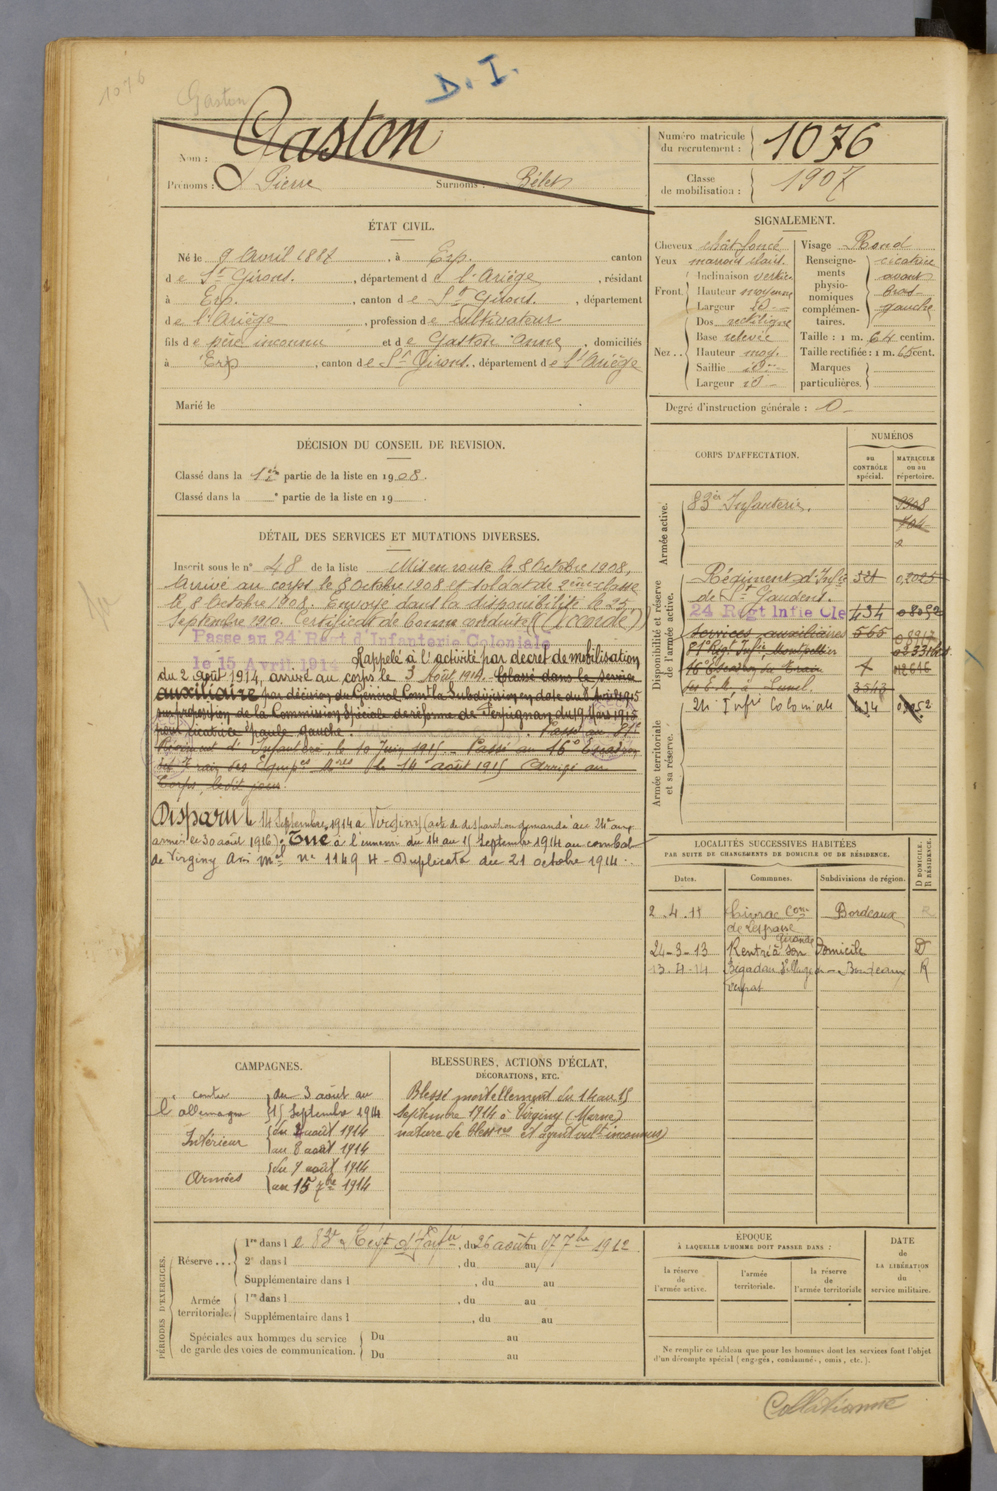 1076
Gaston
D. I.
Nom : Gaston
Prénoms : Pierre Surnoms : Bélet
Numéro matricule du recrutement : 1076
Classe de mobilisation : 1907
ÉTAT CIVIL.
Né le 9 Avril 1887, à Erp. canton
de St Girons., département de l'Ariège, résidant
à Erp., canton de St Girons., département
de l'Ariège, profession de cultivateur
fils de père inconnu et de Gaston Anne, domiciliés
à Erp, canton de St Girons., département de l'Ariège
Marié le
SIGNALEMENT.
Cheveux chât foncé
Yeux marrons clairs.
Front. Inclinaison vertic
Hauteur moyenne
Largeur id
Nez.. Dos rectiligne
Base relevée
Hauteur moy.
Saillie id
Largeur id
Visage Rond
Renseignements physionomiques complémentaires. cicatrice avant bras gauche
Taille : 1 m. 64 centim.
Taille rectifiée : 1 m. 65 cent.
Marques particulières.
Degré d'instruction générale : 0
DÉCISION DU CONSEIL DE REVISION.
Classé dans la 1ère partie de la liste en 1908.
Classé dans la e partie de la liste en 19
DÉTAIL DES SERVICES ET MUTATIONS DIVERSES.
Inscrit sous le n° 48 de la liste Mis en route le 8 Octobre 1908,
Arrivé au corps le 8 Octobre 1908 et soldat de 2ème classe
le 8 Octobre 1908. Envoyé dans la disponibilité le 25
Septembre 1910. Certificat de bonne conduite (Accordé)
Passe au 24e Regt d'Infanterie Coloniale
le 15 Avril 1914 Rappelé à l'activité par décret de mobilisation
du 2 août 1914, arrivé au corps le 3 Août 1914. Classé dans le service
auxiliaire par décision du Général Comt la Subdivision en date du 8 Avril 1915
sur proposition de la Commission Spéciale de réforme de Perpignan du 19 Mars 1915
pour cicatrice épaule gauche. Passé au 81e
Régiment d'Infanterie, le 10 Juin 1915. Passé au 16e Escadron
du Train des Équip. Mres le 14 août 1915 Arrivé au
Corps le dit jour.
Disparu le 14 Septembre 1914 à Virginy (acte de disparition demandé au 24e
armée le 30 août 1916). Tué à l'ennemi du 14 au 15 Septembre 1914 au combat
de Virginy Avis Mel n° 1149 H - Duplicata du 21 octobre 1914.
CORPS D'AFFECTATION.
NUMÉROS
au CONTRÔLE spécial.
MATRICULE ou au répertoire.
Armée active.
83e Infanterie. 9908
704
Disponibilité et réserve de l'armée active.
Régiment d'Infie 321 02025
de St Gaudens.
24 Regt Infie Cle 434 08052
Services auxiliaires 565
81e Regt Infie Montpellier
16e Escadron du Train
des E. M. à Lunel. 3548
Armée territoriale et sa réserve.
24 Infie Coloniale 434 08052
LOCALITÉS SUCCESSIVES HABITÉES
PAR SUITE DE CHANGEMENTS DE DOMICILE OU DE RÉSIDENCE.
D DOMICILE. R RÉSIDENCE.
Dates. Communes. Subdivisions de région.
2.4.11 Civrac Con de Lesparre Gironde Bordeaux R
24-3-13 Rentré à son Domicile D
13.4.14 Bégadan Village Bordeaux R
CAMPAGNES.
contre l'allemagne du 3 août au 15 Septembre 1914
Intérieur du 3 août 1914 au 8 août 1914
Armées du 9 août 1914 au 15 7bre 1914
BLESSURES, ACTIONS D'ÉCLAT,
DÉCORATIONS, ETC.
Blessé mortellement du 14 au 15
Septembre 1914 à Virginy (Marne)
nature de blessures et agent vult inconnus
PÉRIODES D'EXERCICES.
Réserve... 1re dans le 83e Régt d'Infie, du 26 août au 17 7bre 1912
2e dans l , du au
Supplémentaire dans l , du au
Armée territoriale. 1re dans l , du au
Supplémentaire dans l , du au
Spéciales aux hommes du service de garde des voies de communication. Du au
Du au
ÉPOQUE
À LAQUELLE L'HOMME DOIT PASSER DANS :
la réserve de l'armée active.
l'armée territoriale.
la réserve de l'armée territoriale
DATE de LA LIBÉRATION du service militaire.
Ne remplir ce tableau que pour les hommes dont les services font l'objet
d'un décompte spécial (engagés, condamnés, omis, etc.).
Collationné